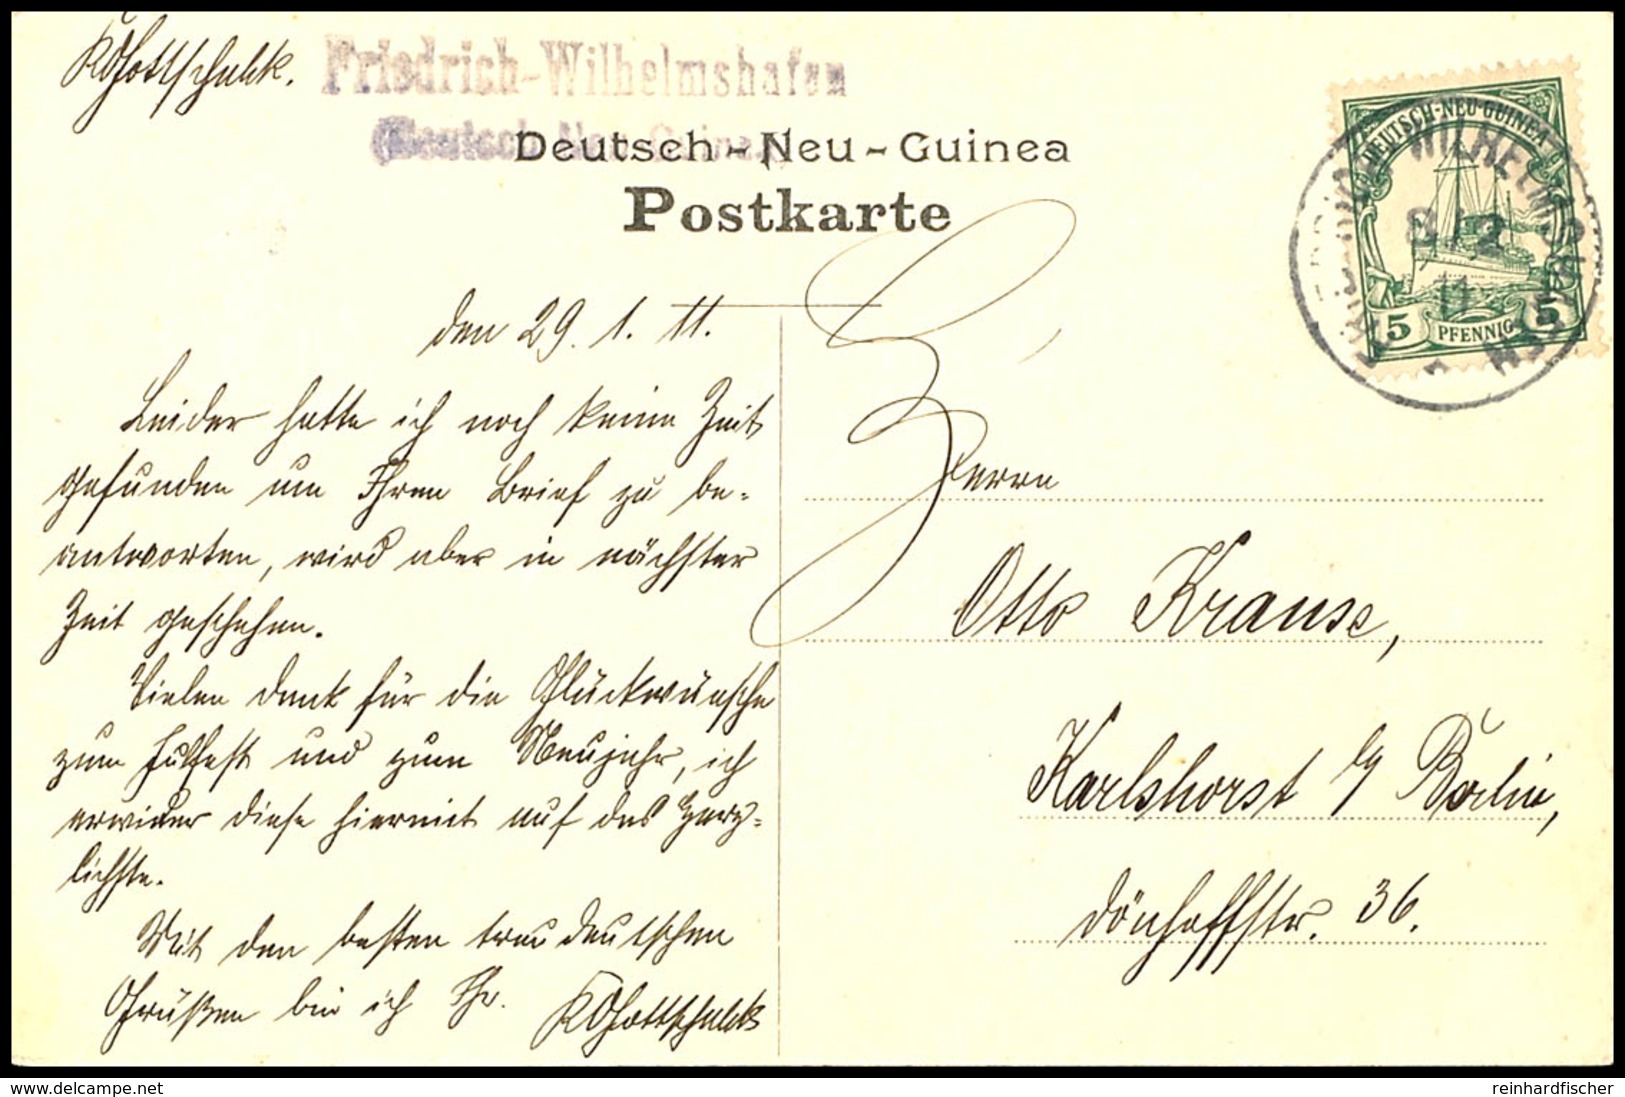 KGottschalk.
Friedrich-Wilhelmshafen
(Deutsch-Neu-Guinea)
Deutsch-Neu-Guinea
Postkarte
DEUTSCH-NEU-GUINEA
5 PFENNIG 5
FRIEDRICH WILHELMSHAFEN
8/2
11
den 29. 1. 11.
Leider hatte ich noch keine Zeit
gefunden um Ihren Brief zu be-
antworten, wird aber in nächster
Zeit geschehen.
Vielen Dank für die Glückwünsche
zum Julfest und zum Neujahr, ich
erwider diese hiermit auf das Herz-
lichste.
Mit den besten treudeutschen
Grüßen bin ich Ihr. KGottschalk
Herrn
Otto Krause,
Karlshorst b/ Berlin,
Dönhoffstr. 36.
www.delcampe.net
reinhardfischer